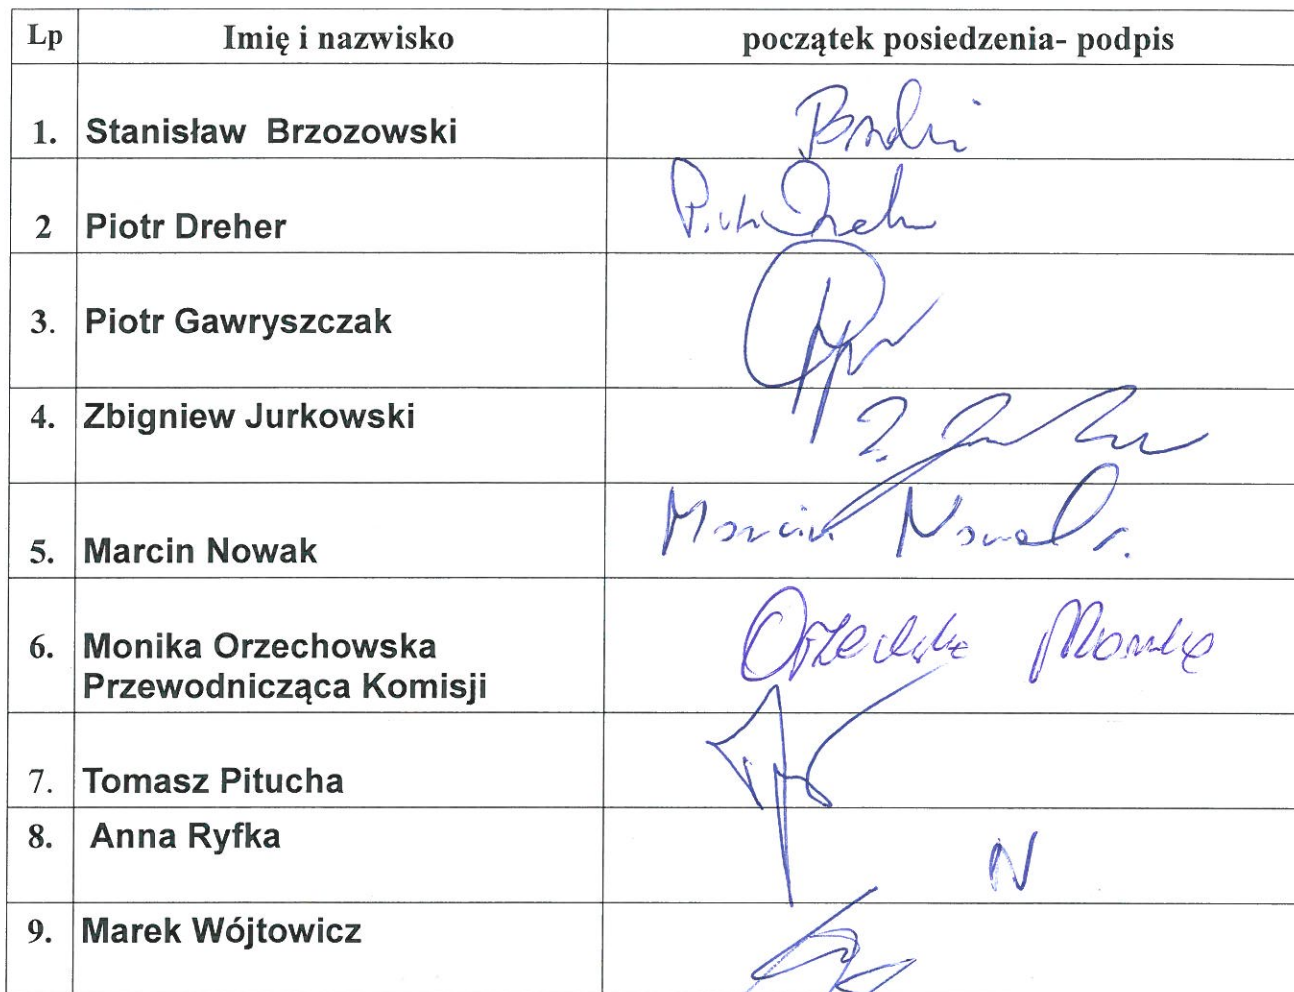 Lp Imię i nazwisko początek posiedzenia- podpis
1. Stanisław Brzozowski
2 Piotr Dreher
3. Piotr Gawryszczak
4. Zbigniew Jurkowski
5. Marcin Nowak Marcin Nowak
6. Monika Orzechowska
Przewodnicząca Komisji
7. Tomasz Pitucha
8. Anna Ryfka N
9. Marek Wójtowicz